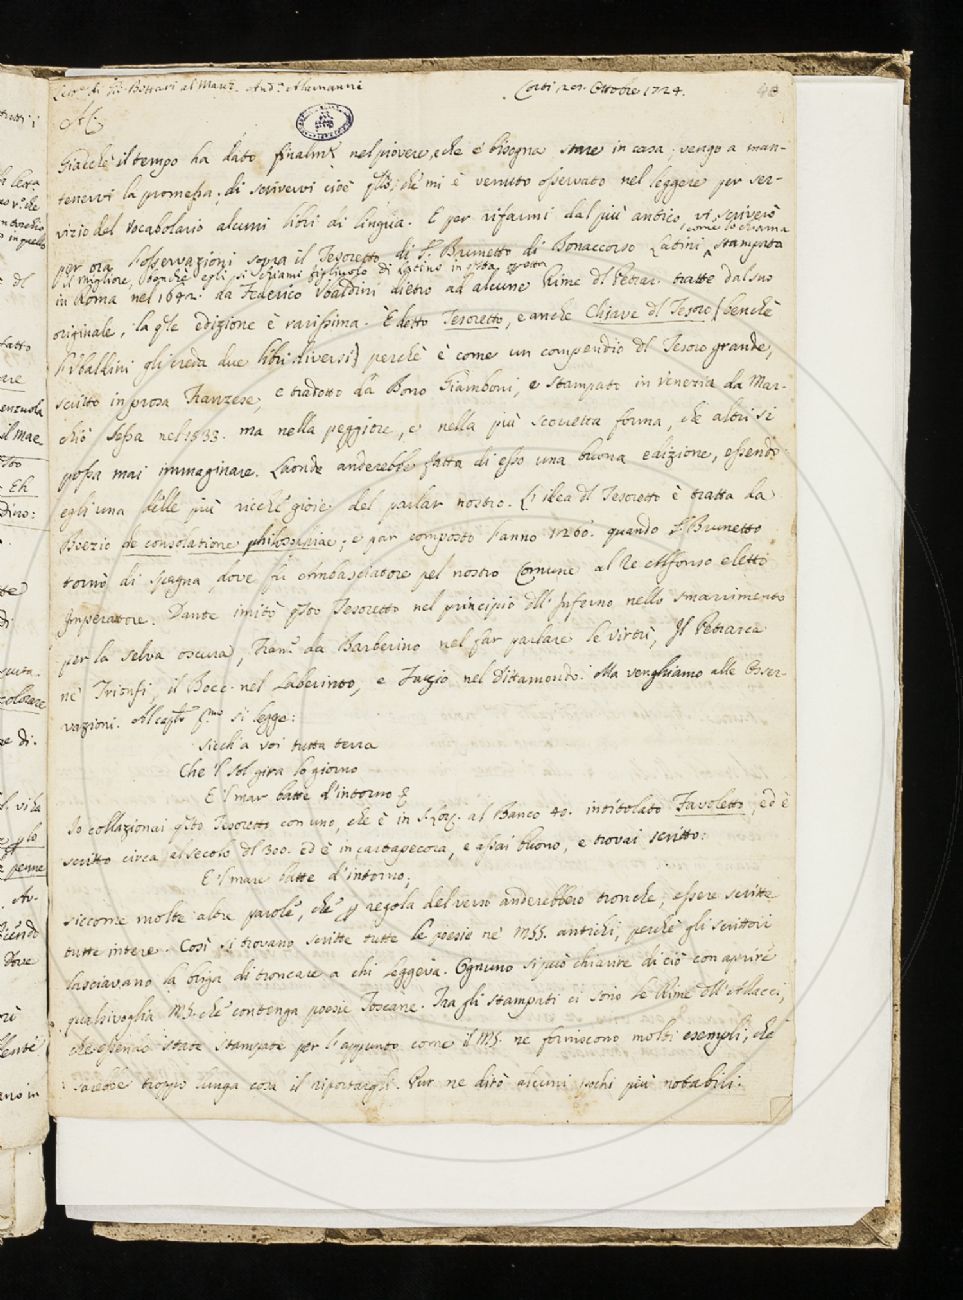 Lett.ª di G. Bottari al March. And.ª Alamanni
Corti, 27. Ottobre 1724.
40
AC.
Giacchè il tempo ha dato finalm.te nel piovere, e che e' bisogna stare in casa; vengo a man-
tenervi la promessa, di scrivervi cioè q.llo, che mi è venuto osservato nel leggere per ser-
vizio del Vocabolario alcuni libri di lingua. E per rifarmi dal più antico, vi scriverò
come lo chiama
per ora l'osservazioni sopra il Tesoretto di S.r Brunetto di Bonaccorso Latini, stampato
il migliore, benchè egli si chiami figliuolo di Latino in q.sta
in Roma nel 1642. da Federico Ubaldini dietro ad alcune Rime del Petrar. tratte dal suo
originale, la q.le edizione è rarissima. È detto Tesoretto, e anche Chiave dl Tesoro (benchè
l'Ubaldini gli creda due libri diversi) perchè è come un compendio dl Tesoro grande,
scritto in prosa Franzese, e tradotto da Bono Giamboni, e stampato in Venezia da Mar-
chiò Sessa nel 1533. ma nella peggiore, e nella più scorretta forma, che altri si
possa mai immaginare. Laonde anderebbe fatta di esso una buona edizione, essendo
egli una delle più ricche gioie del parlar nostro. L'idea dl Tesoretto è tratta da
Boezio de consolatione philosophiae; e par composto l'anno 1260. quando S.r Brunetto
tornò di Spagna, dove fù Ambasciatore pel nostro Comune al Re Alfonso eletto
Imperatore. Dante imitò q.sto Tesoretto nel principio dll'Inferno nello smarrimento
per la selva oscura, Fran.co da Barberino nel far parlare le virtù, Il Petrarca
ne' Trionfi, il Bocc. nel Laberinto, e Fazio nel Dittamondo. Ma venghiamo alle Osser-
vazioni. Al cap.lo p.mo si legge:
Sicch'a voi tutta terra
Che 'l sol gira lo giorno
E 'l mar batte d'intorno
Io collazionai q.sto Tesoretto con uno, che è in S. Lor. al Banco 40. intitolato Favoletto, ed è
scritto circa al secolo dl 300. ed è in cartapecora, e assai buono, e trovai scritto:
E 'l mare batte d'intorno;
siccome molte altre parole, che p regola del verso anderebbero tronche, essere scritte
tutte intere. Così si trovano scritte tutte le poesie ne' MSS. antichi, perchè gli scrittori
lasciavano la briga di troncare a chi leggeva. Ognuno si può chiarire di ciò con aprire
qualsivoglia MS. che contenga poesie Toscane. Tra gli stampati ci sono le Rime dll'Allacci,
che essendo state stampate per l'appunto come il MS. ne forniscono molti esempli, che
sarebbe troppo lunga cosa il riportargli. Pur ne dirò alcuni pochi più notabili.